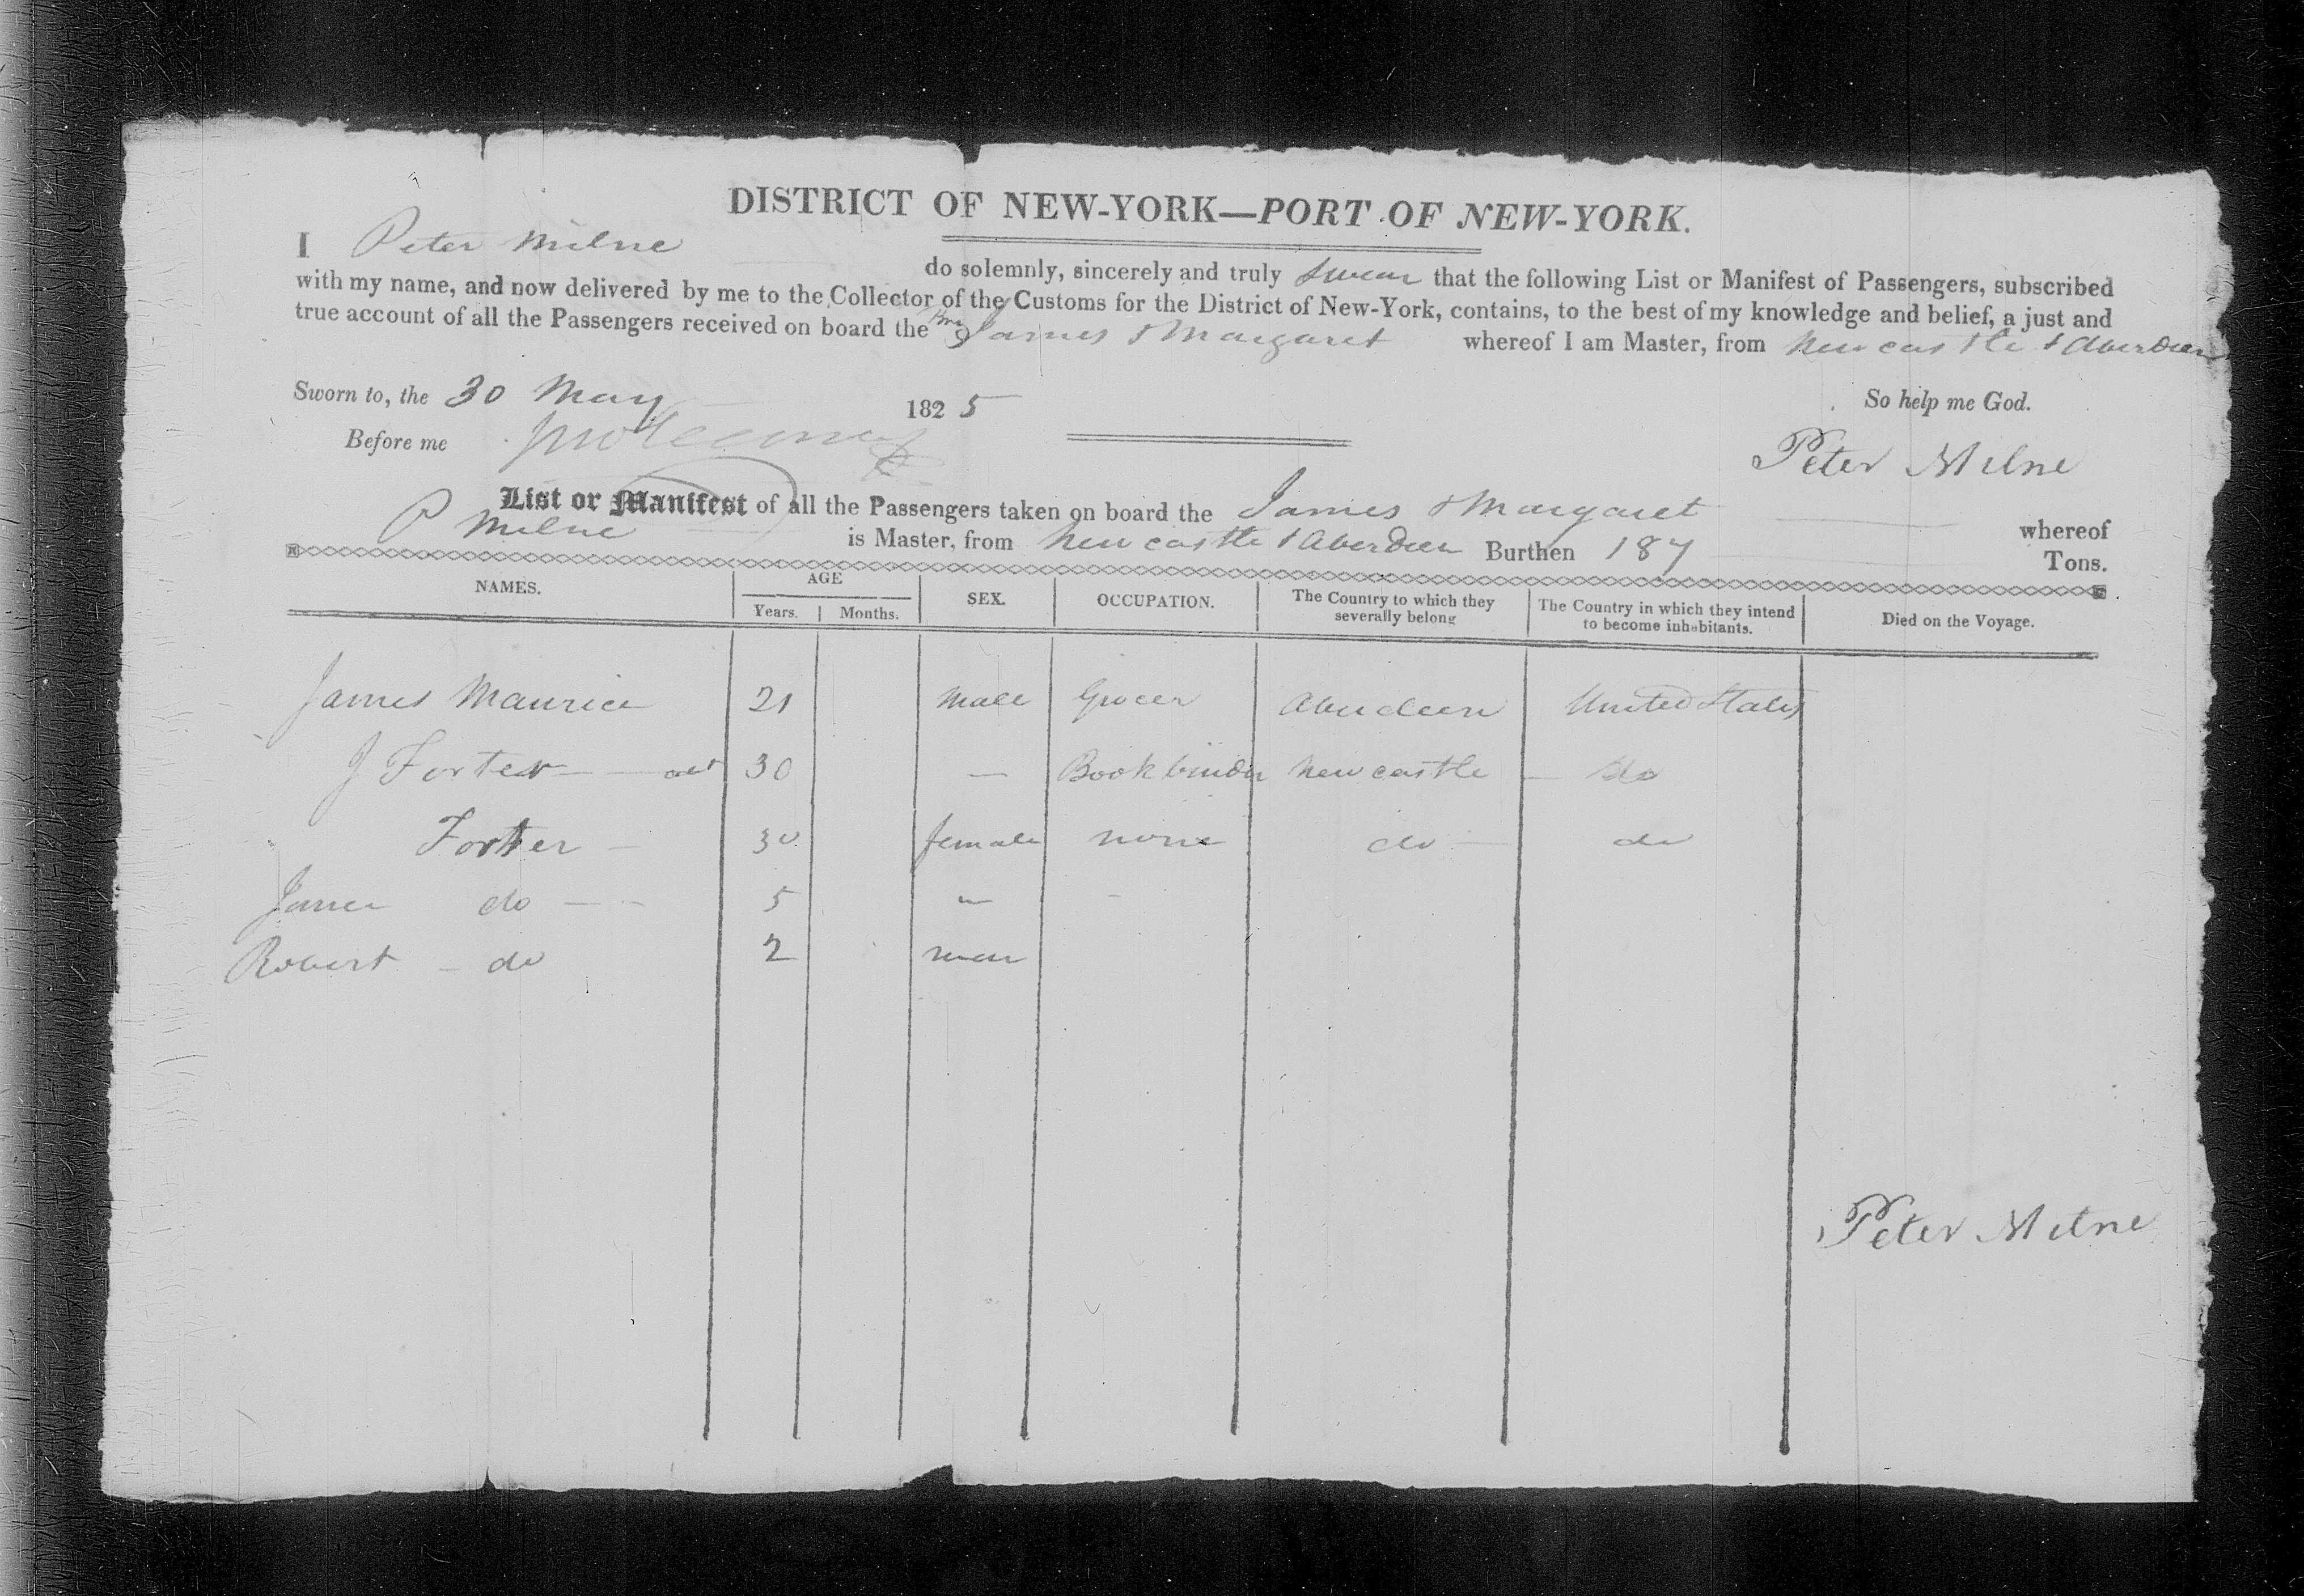 DISTRICT OF NEW-YORK—PORT OF NEW-YORK.
I Peter Milne do solemnly, sincerely and truly swear that the following List or Manifest of Passengers, subscribed
with my name, and now delivered by me to the Collector of the Customs for the District of New-York, contains, to the best of my knowledge and belief, a just and
true account of all the Passengers received on board the Brig James & Margaret whereof I am Master, from Newcastle & Aberdeen
Sworn to, the 30 May 1825 So help me God.
Before me
Peter Milne
List or Manifest of all the Passengers taken on board the James & Margaret whereof
P Milne is Master, from Newcastle & Aberdeen Burthen 187 Tons.
NAMES. AGE SEX. OCCUPATION. The Country to which they severally belong The Country in which they intend to become inhabitants. Died on the Voyage.
Years. Months.
James Maurice 21 Male Grocer Aberdeen United States
J Forter 30 — Bookbinder Newcastle — do
Forter — 30 female none do — do
do — 5 —
Robert — do 2
Peter Milne